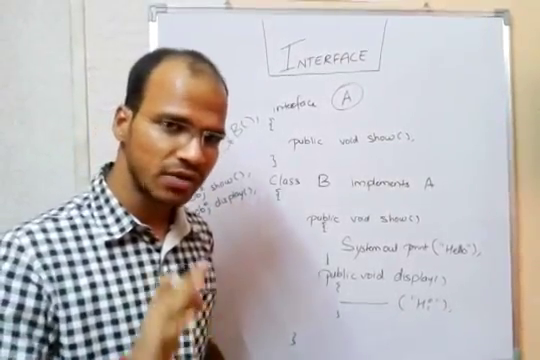 INTERFACE
interface A
{
public void show();
}
class B implements A
{
public void show()
{
System out print ("Hello");
}
public void display()
{
("Hi");
}
}
B();
show();
display();